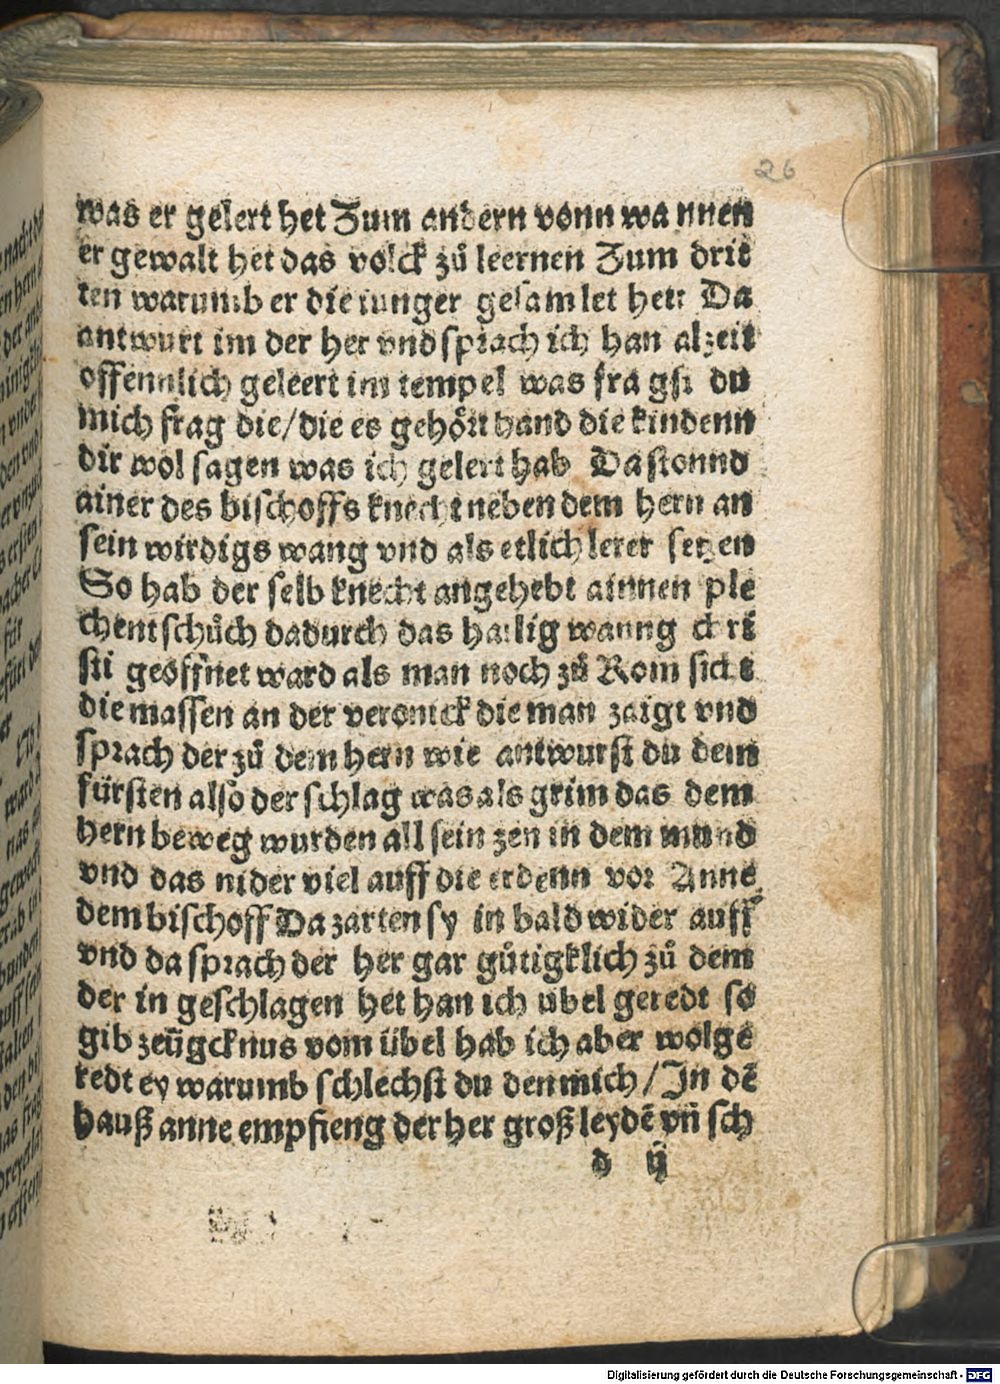 26
was er gelert het Zum andern vonn wa nnen
er gewalt het das volck zů leernen Zum drit
ten warumb er die iunger gesamlet hett Da
antwurt im der her vnd sprach ich han alzeit
offennlich geleert im tempel was fra gst du
mich frag die/die es gehört hand die kindenn
dir wol sagen was ich gelert hab Da stonnd
ainer des bischoffs knecht neben dem hern an
sein wirdigs wang vnd als etlich lerer setzen
So hab der selb knecht angehebt ainnen ple
chent schůch dadurch das hailig wanng cbri
sti geöffnet ward als man noch zů Rom sicht
die massen an der veronick die man zaigt vnd
sprach der zů dem hern wie antwurst du dem
fürsten also der schlag was als grim das dem
hern beweg wurden all sein zen in dem mund
vnd das nider viel auff die erdenn vor Anne
dem bischoff Da zarten sy in bald wider auff
vnd da sprach der her gar gůtigklich zů dem
der in geschlagen het han ich übel geredt so
gib zeügcknus vom übel hab ich aber wolge
redt ey warumb schlechst du den mich / In dē
hauß anne empfieng der her groß leydē vn̄ sch
d ij
Digitalisierung gefördert durch die Deutsche Forschungsgemeinschaft - DFG